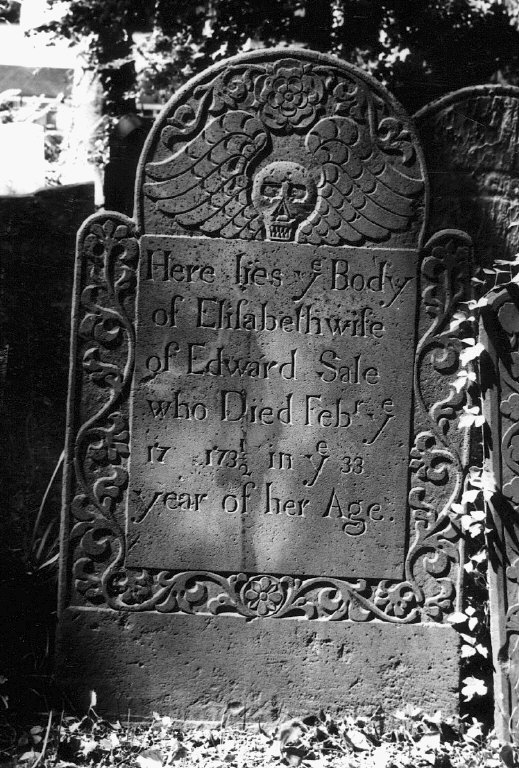 Here lies yᵉ Body
of Elisabeth wife
of Edward Sale
who Died Febʳ yᵉ
17 173½ in yᵉ 33
year of her Age.